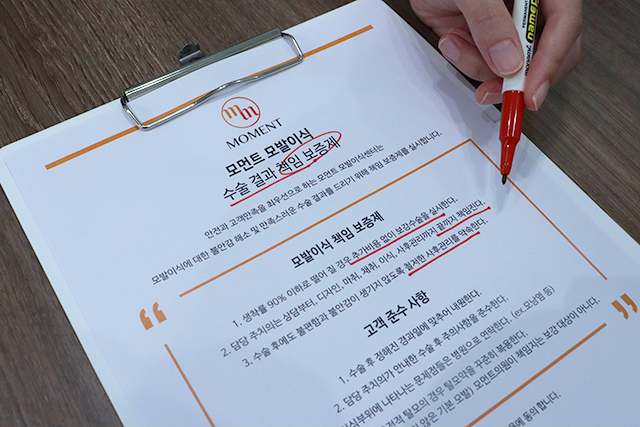 MOMENT
모먼트 모발이식
수술 결과 책임 보증제
안전과 고객만족을 최우선으로 하는 모먼트 모발이식센터는
모발이식에 대한 불안감 해소 및 만족스러운 수술 결과를 드리기 위해 책임 보증제를 실시합니다.
모발이식 책임 보증제
1. 생착률 90% 이하로 떨어 질 경우 추가비용 없이 보강수술을 실시한다.
2. 담당 주치의는 상담부터, 디자인, 마취, 채취, 이식, 사후관리까지 끝까지 책임진다.
3. 수술 후에도 불편함과 불안감이 생기지 않도록 철저한 사후관리를 약속한다.
고객 준수 사항
1. 수술 후 정해진 경과일에 맞추어 내원한다.
2. 담당 주치의가 안내한 수술 후 주의사항을 준수한다.
이식부위에 나타나는 문제점들은 병원으로 연락한다. (ex.모낭염 등)
적 탈모의 경우 탈모약을 꾸준히 복용한다.
않은 기본 모발) 모먼트의원이 책임지는 보강 대상이 아니다.
용에 동의 합니다.
monami
namepen